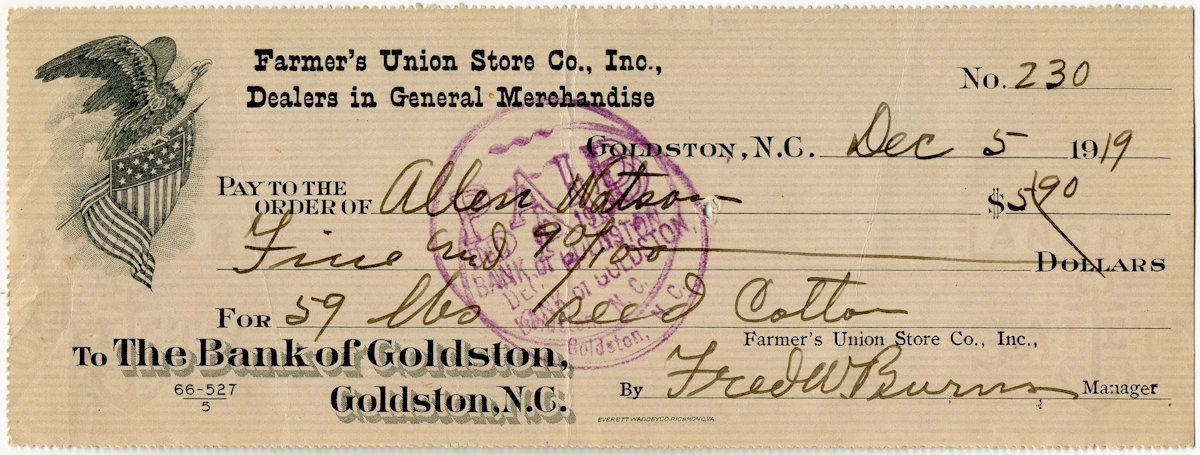 Farmer's Union Store Co., Inc.,
Dealers in General Merchandise
No. 230
GOLDSTON, N.C. Dec 5 1919
PAY TO THE
ORDER OF Allen Watson $5.90
Five and 90/100 DOLLARS
FOR 59 lbs seed Cotton
To The Bank of Goldston,
Goldston, N.C.
66-527
5
Farmer's Union Store Co., Inc.,
By Fred W. Burns Manager
EVERETT WADDEY CO. RICHMOND, VA.
PAID
BANK OF GOLDSTON
DEC
BANK OF GOLDSTON,
N. C.
Goldston, N.C.